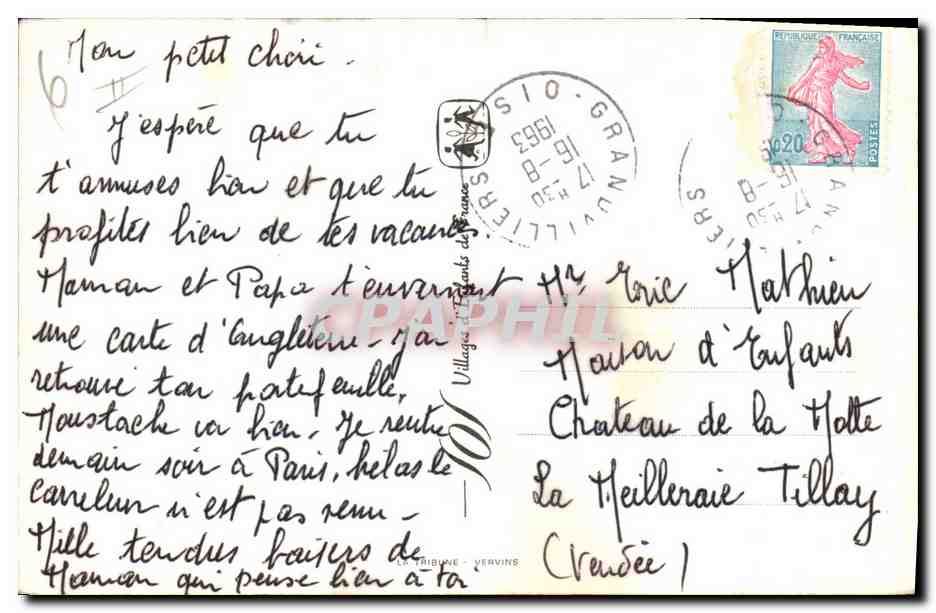 6
II
Mon petit chéri.
J'espère que tu
t'amuses bien et que tu
profites bien de tes vacances.
Maman et Papa t'enverront
une carte d'Angleterre - J'ai
retrouvé ton portefeuille,
Moustache va bien, Je rentre
demain soir à Paris, hélas le
carreleur n'est pas venu -
Mille tendres baisers de
Maman qui pense bien à toi
SOS
Villages d'Enfants de France
LA TRIBUNE - VERVINS
GRANVILLIERS OISE
17 H30
16-8
1963
REPUBLIQUE FRANÇAISE
0,20
POSTES
17 H30
16-8
Mr Eric Mathieu
Maison d'Enfants
Chateau de la Motte
La Meilleraie Tillay
(Vendée)
CPAPHIL